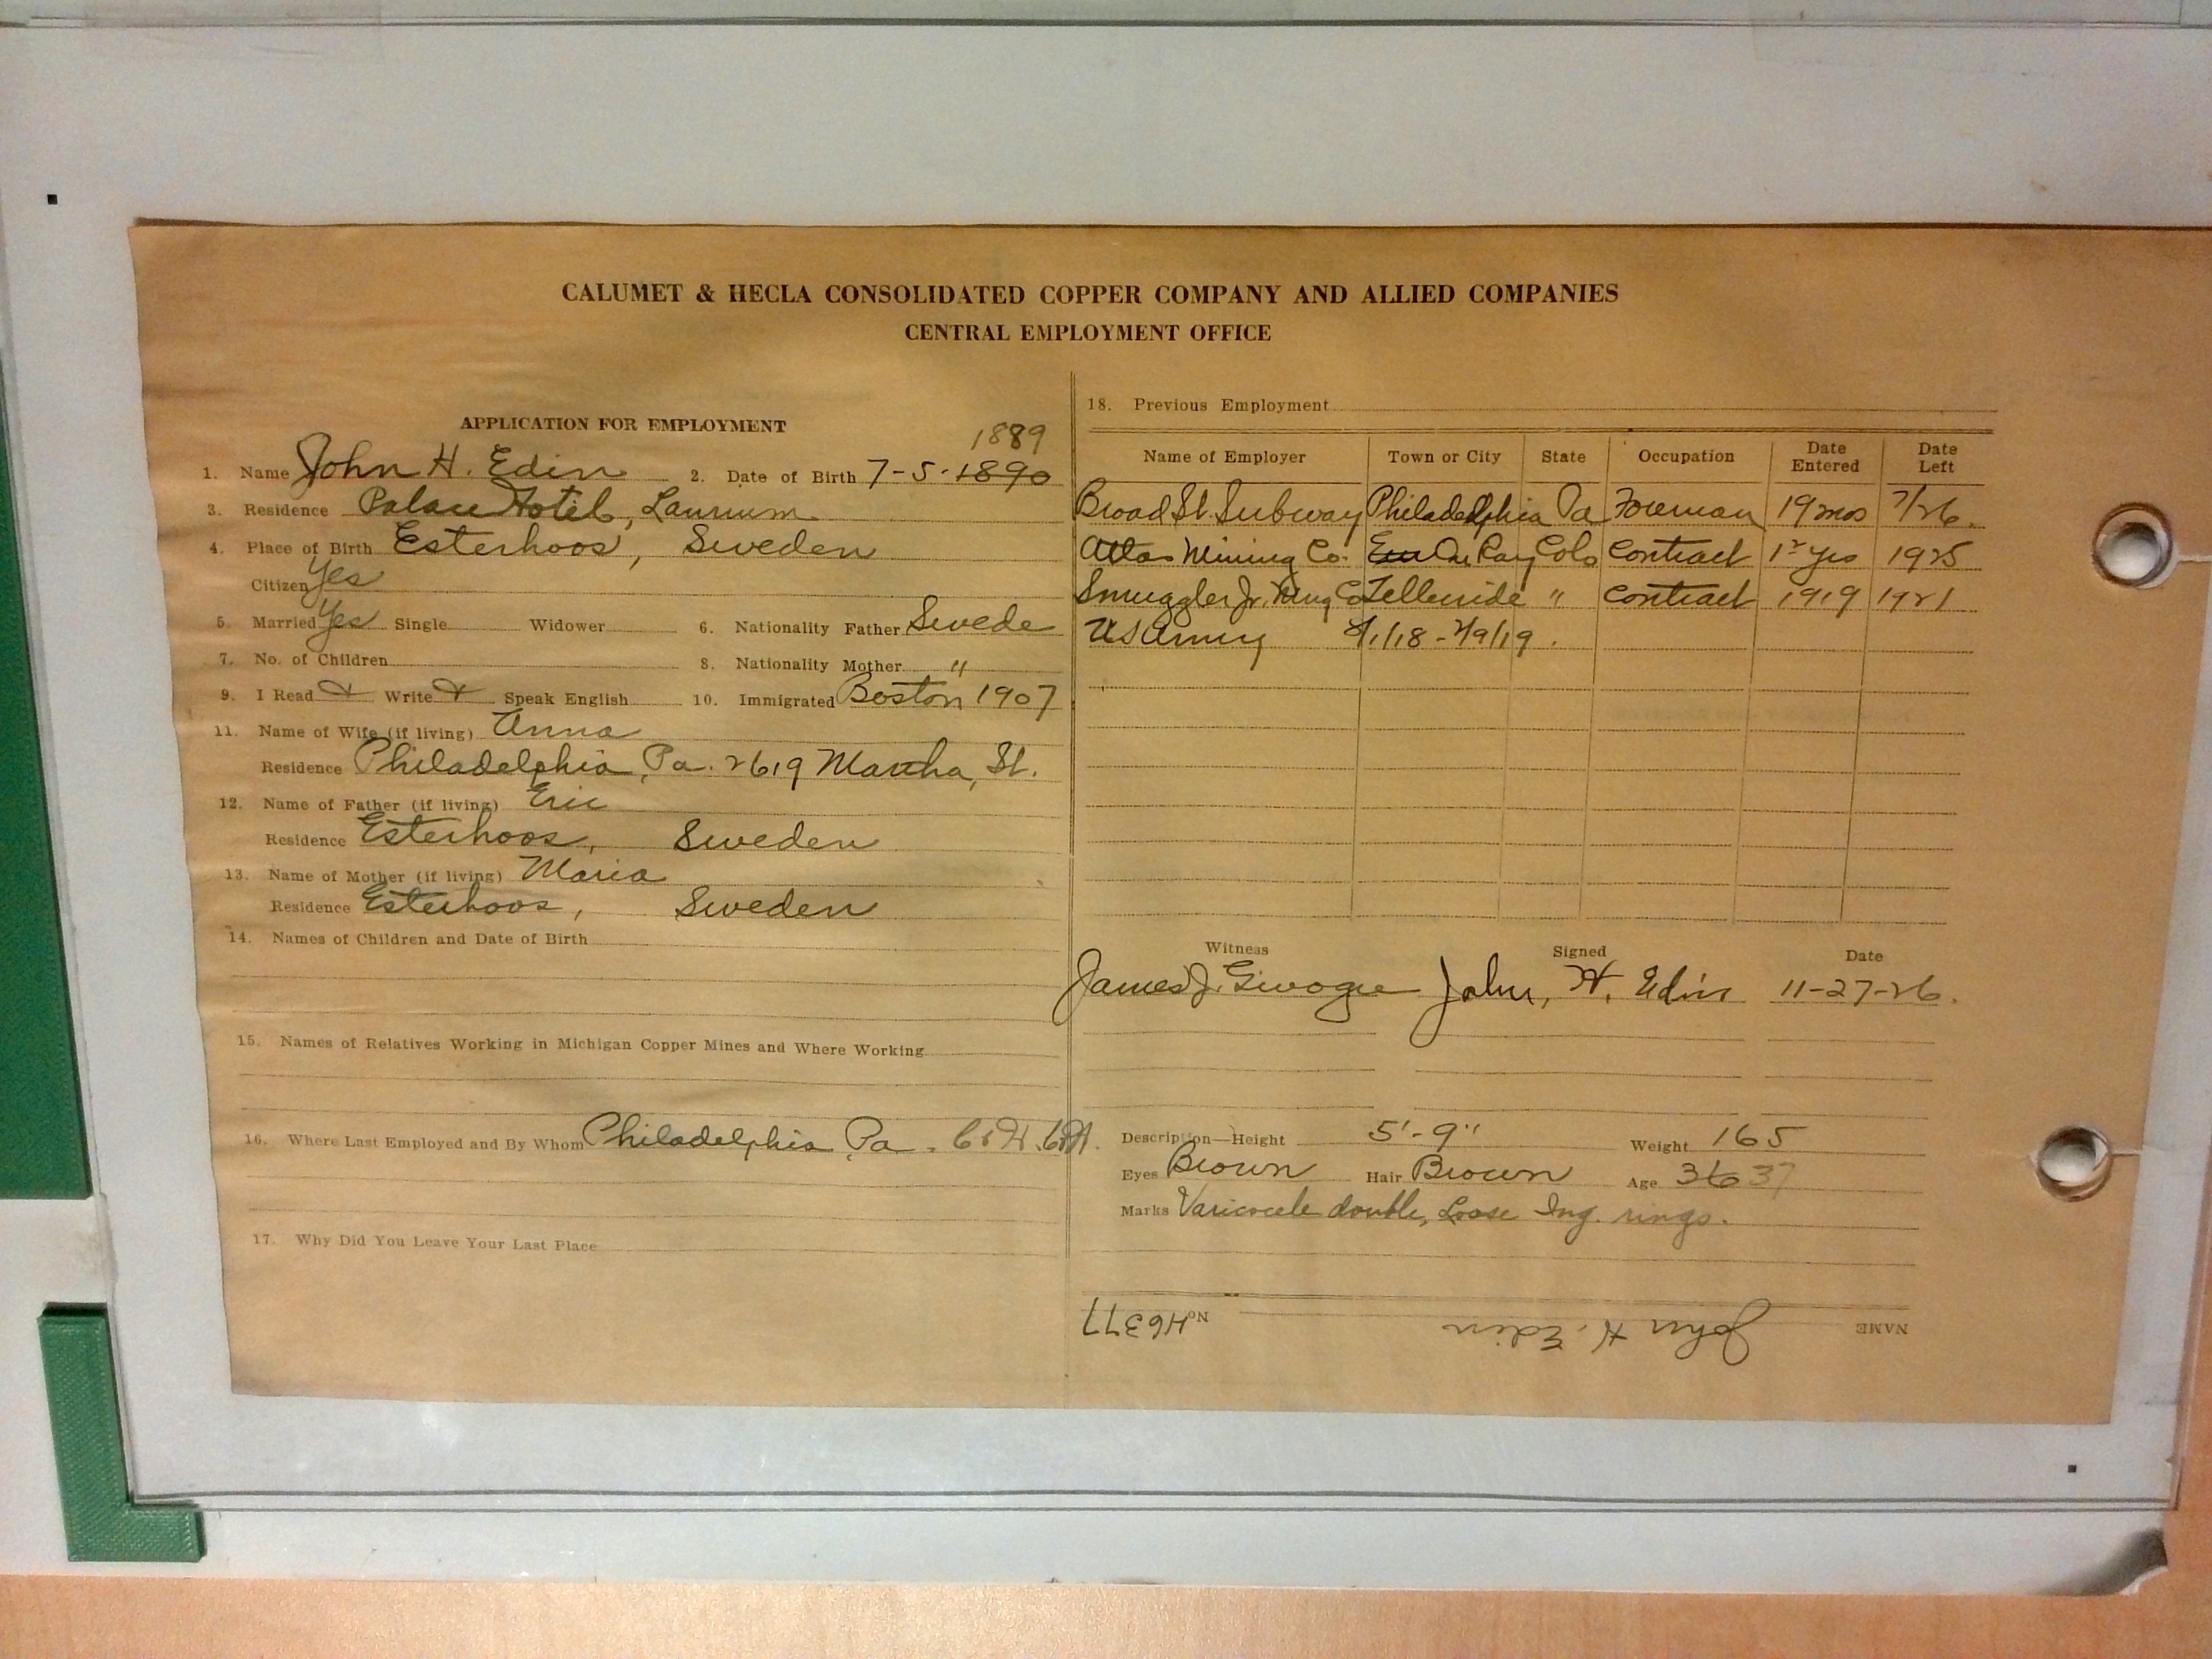 CALUMET & HECLA CONSOLIDATED COPPER COMPANY AND ALLIED COMPANIES
CENTRAL EMPLOYMENT OFFICE
APPLICATION FOR EMPLOYMENT
1889
1. Name John H. Edin 2. Date of Birth 7-5-1890
3. Residence Palace Hotel, Laurium
4. Place of Birth Esterhoos, Sweden
Citizen Yes
5. Married Yes Single Widower 6. Nationality Father Swede
7. No. of Children 8. Nationality Mother "
9. I Read Write Speak English 10. Immigrated Boston 1907
11. Name of Wife (if living) Anna
Residence Philadelphia, Pa. 2619 Martha, St.
12. Name of Father (if living) Eric
Residence Esterhoos, Sweden
13. Name of Mother (if living) Maria
Residence Esterhoos, Sweden
14. Names of Children and Date of Birth
15. Names of Relatives Working in Michigan Copper Mines and Where Working
16. Where Last Employed and By Whom Philadelphia, Pa.
17. Why Did You Leave Your Last Place
18. Previous Employment
Name of Employer Town or City State Occupation Date Entered Date Left
Broad St. Subway Philadelphia Pa Foreman 19 mos 7/26.
Atlas Mining Co. Ou Ray Colo Contract yrs 1925
Smuggler Jr. Mng Co Telleuride " Contract 1919 1921
US Army 8/1/18 - 7/9/19.
Witness Signed Date
James J. John, H. Edin 11-27-26.
Description—Height 5'-9" Weight 165
Eyes Brown Hair Brown Age 36 37
Marks Varicocele double, Loose Ing. rings.
NAME John H. Edin No H6377